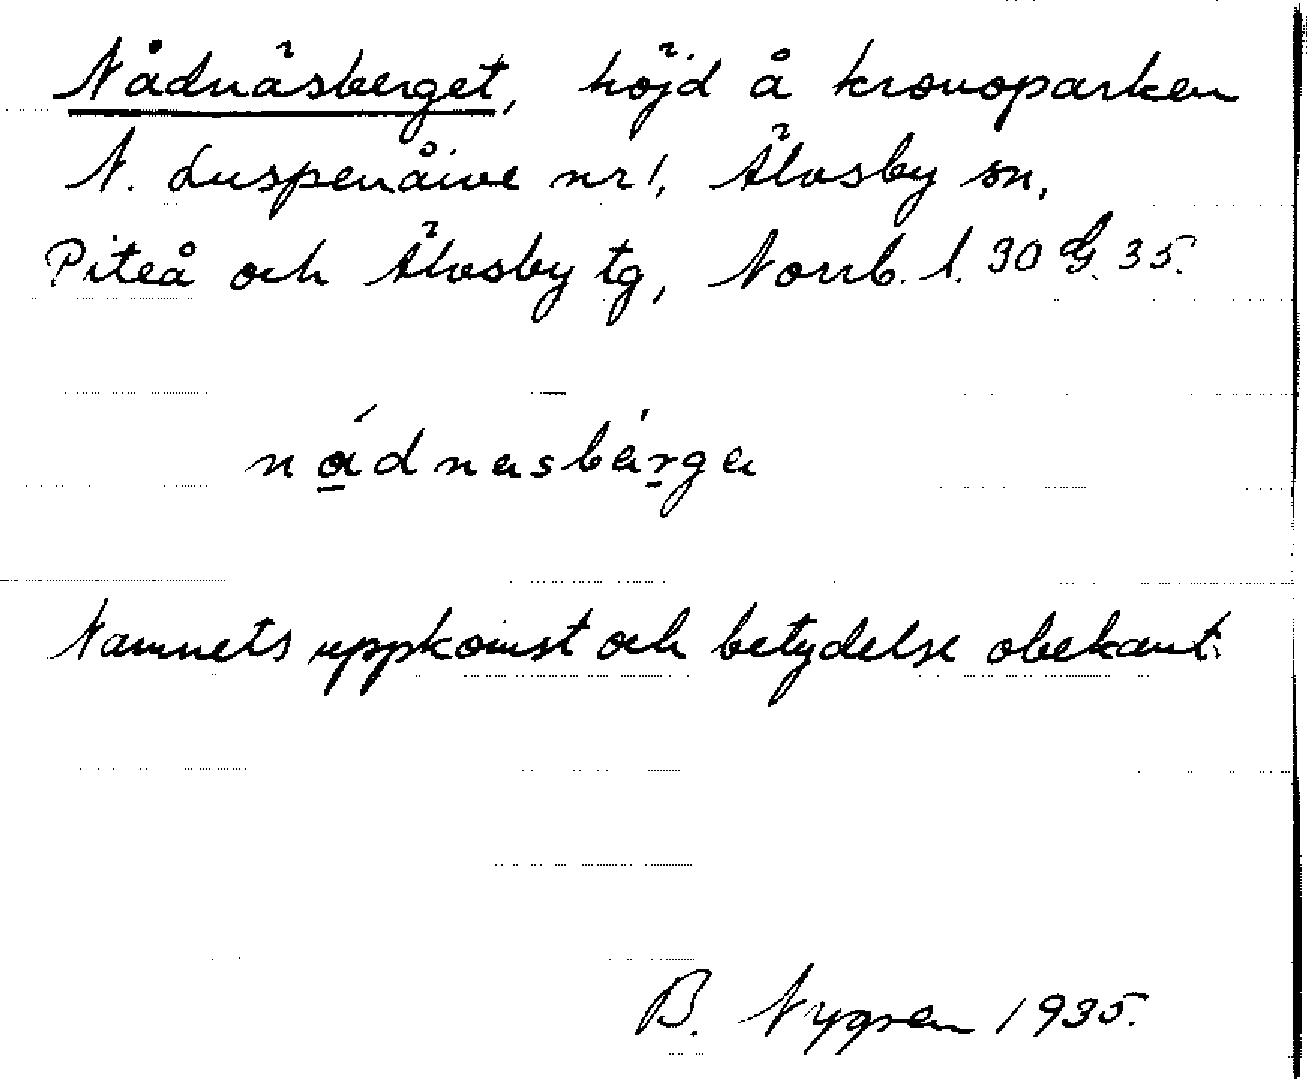 Nådnäsberget, höjd å kronoparken
N. Luspenåive nr 1, Älvsby sn,
Piteå och Älvsby tg, Norrb. l. 30 G. 35.
nádnasbärga
Namnets uppkomst och betydelse obekant.
B. Nygren 1935.